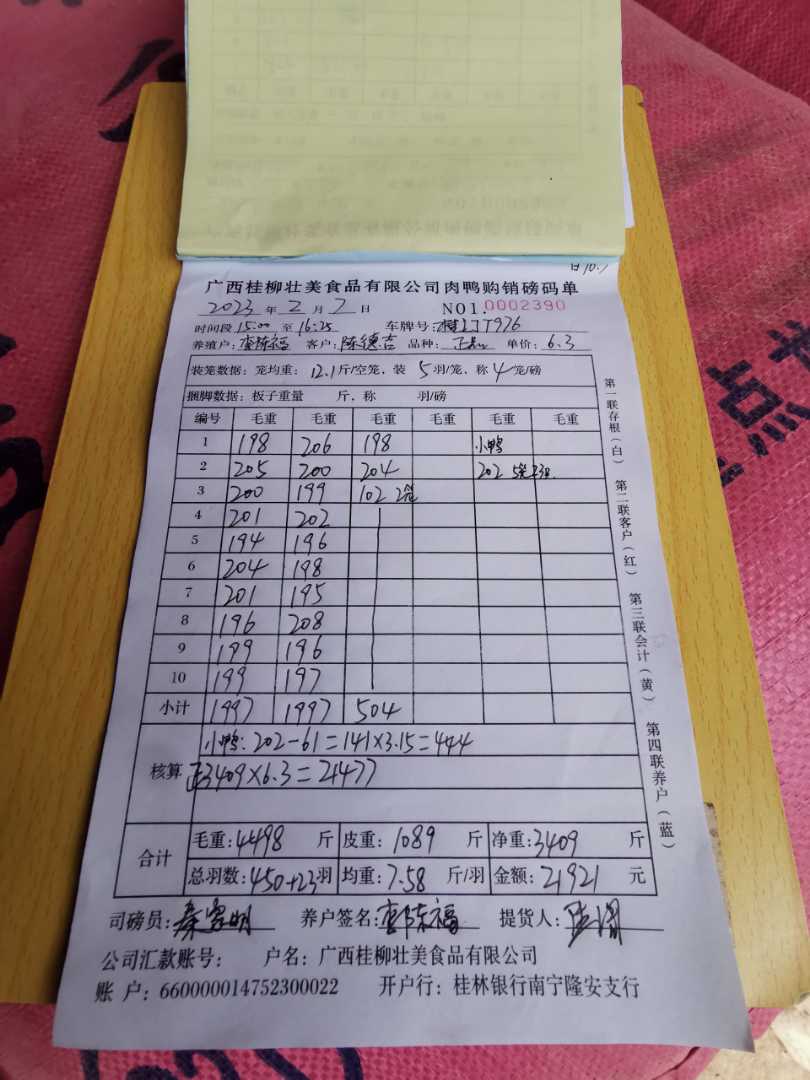 广西桂柳壮美食品有限公司肉鸭购销磅码单
2023年2月7日 NO1.0002390
时间段15:00至16:25 车牌号:JT976
养殖户: 客户:陈德吉 品种: 单价:6.3
装笼数据:笼均重:12.1斤/空笼,装5羽/笼,称4笼/磅
捆脚数据:板子重量 斤,称 羽/磅
编号 毛重 毛重 毛重 毛重 毛重 毛重
1 198 206 198 小鸭
2 205 200 204 202 5笼
3 200 199 102 2笼
4 201 202
5 194 196
6 204 198
7 201 195
8 196 208
9 199 196
10 199 197
小计 1997 1997 504
小鸭:202-61=141×3.15=444
核算 正3409×6.3=21477
合计 毛重:4498斤 皮重:1089斤 净重:3409斤
总羽数:450+23羽 均重:7.58斤/羽 金额:21921元
司磅员: 养户签名: 提货人:
公司汇款账号: 户名:广西桂柳壮美食品有限公司
账户:660000014752300022 开户行:桂林银行南宁隆安支行
第一联存根(白) 第二联客户(红) 第三联会计(黄) 第四联养户(蓝)